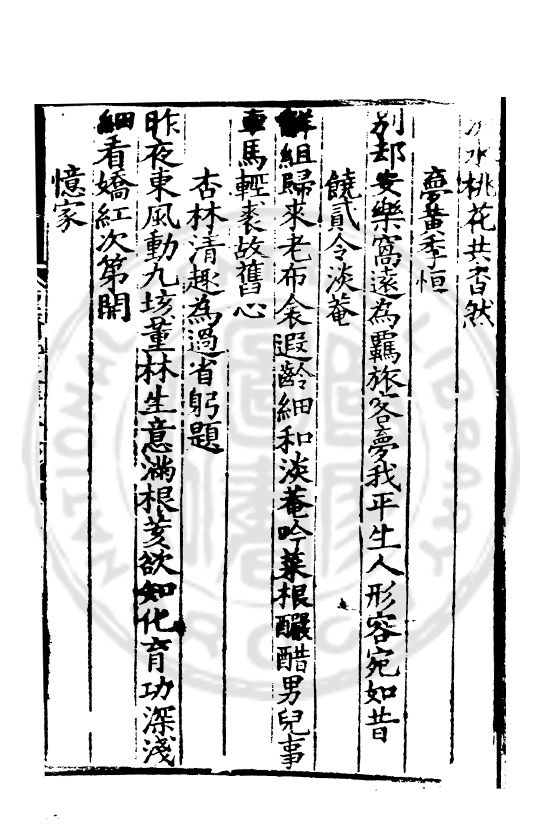 水桃花共杳然
夢黃季恒
別却安樂窩遠為羈旅客夢我平生人形容宛如昔
饒貳令淡菴
解組歸來老布衾遐齡細和淡菴吟菜根釅醋男兒事
車馬輕裘故舊心
杏林清趣為過省躬題
昨夜東風動九垓董林生意滿根荄欲知化育功深淺
細看嬌紅次第開
憶家